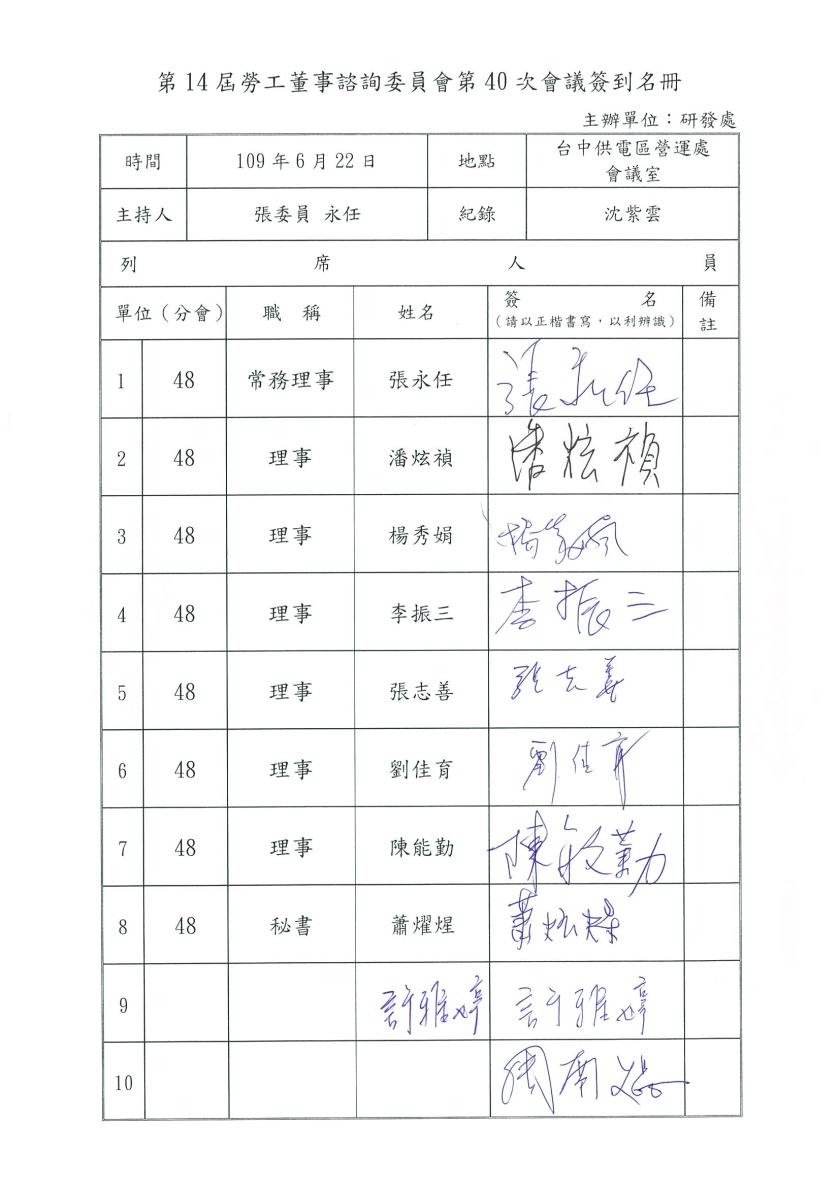 第14屆勞工董事諮詢委員會第40次會議簽到名冊
主辦單位：研發處
時間 109年6月22日 地點 台中供電區營運處
會議室
主持人 張委員 永任 紀錄 沈紫雲
列 席 人 員
單位（分會） 職 稱 姓名 簽 名 備
（請以正楷書寫，以利辨識） 註
1 48 常務理事 張永任 張永任
2 48 理事 潘炫禎 潘炫禎
3 48 理事 楊秀娟 楊秀娟
4 48 理事 李振三 李振三
5 48 理事 張志善 張志善
6 48 理事 劉佳育 劉佳育
7 48 理事 陳能勤 陳能勤
8 48 秘書 蕭燿煋 蕭燿煋
9 許雅婷 許雅婷
10